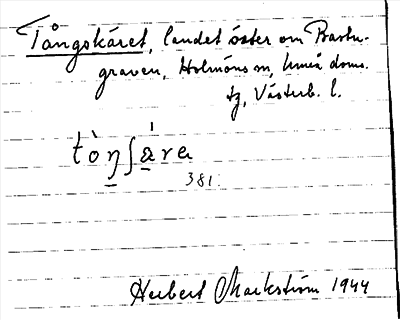 Tångskäret, landet öster om Bastu-
graven, Holmöns sn, Umeå doms.
tg, Västerb. l.
tòŋʃä̀ra
381.
Herbert Markström 1944